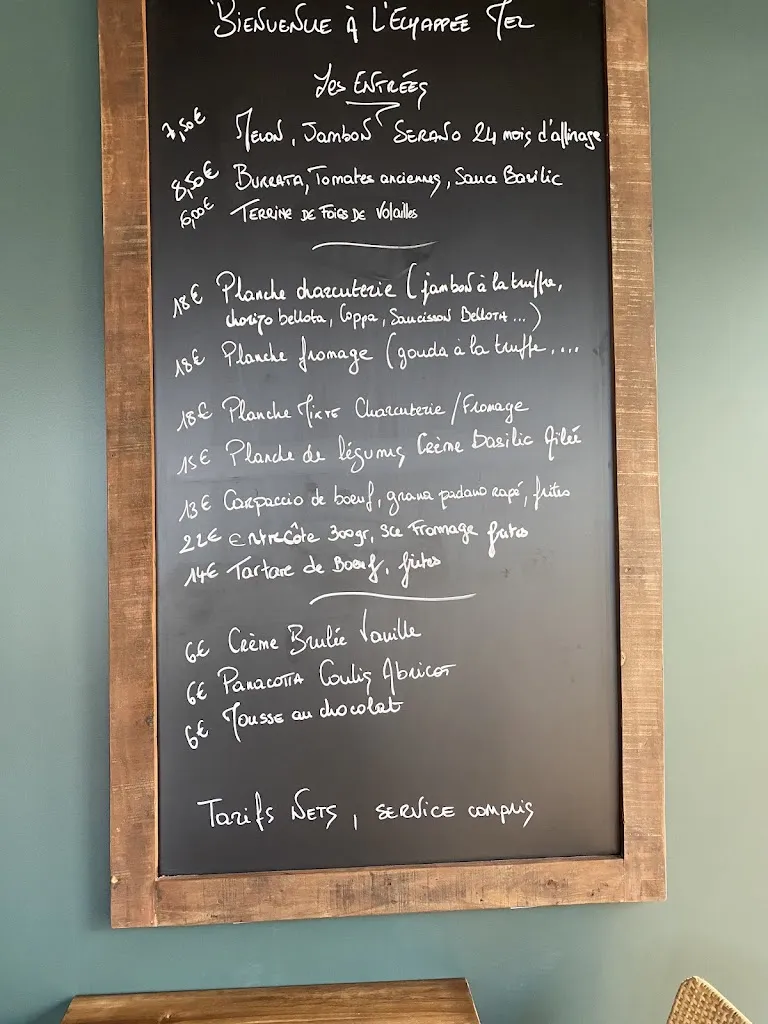 BIENVENUE À L'ECHAPPÉE MER
Les ENTRÉES
7,50€ MELON, JAMBON SERANO 24 mois d'affinage
8,50€ BURRATA, Tomates anciennes, Sauce Basilic
6,00€ TERRINE DE FOIES DE VOLAILLES
18€ Planche charcuterie (jambon à la truffe,
chorizo bellota, Coppa, SAUCISSON BELLOTA ...)
18€ Planche fromage (gouda à la truffe, ...
18€ Planche MIXTE Charcuterie / Fromage
15€ Planche de légumes Crème Basilic Ailée
13€ Carpaccio de boeuf, grana padano rapé, frites
22€ Entrecôte 300gr, Sce Fromage frites
14€ Tartare de Boeuf, frites
6€ Crème Brulée Vanille
6€ PANACOTTA Coulis Abricot
6€ Mousse au chocolat
Tarifs NETS, SERVICE compris